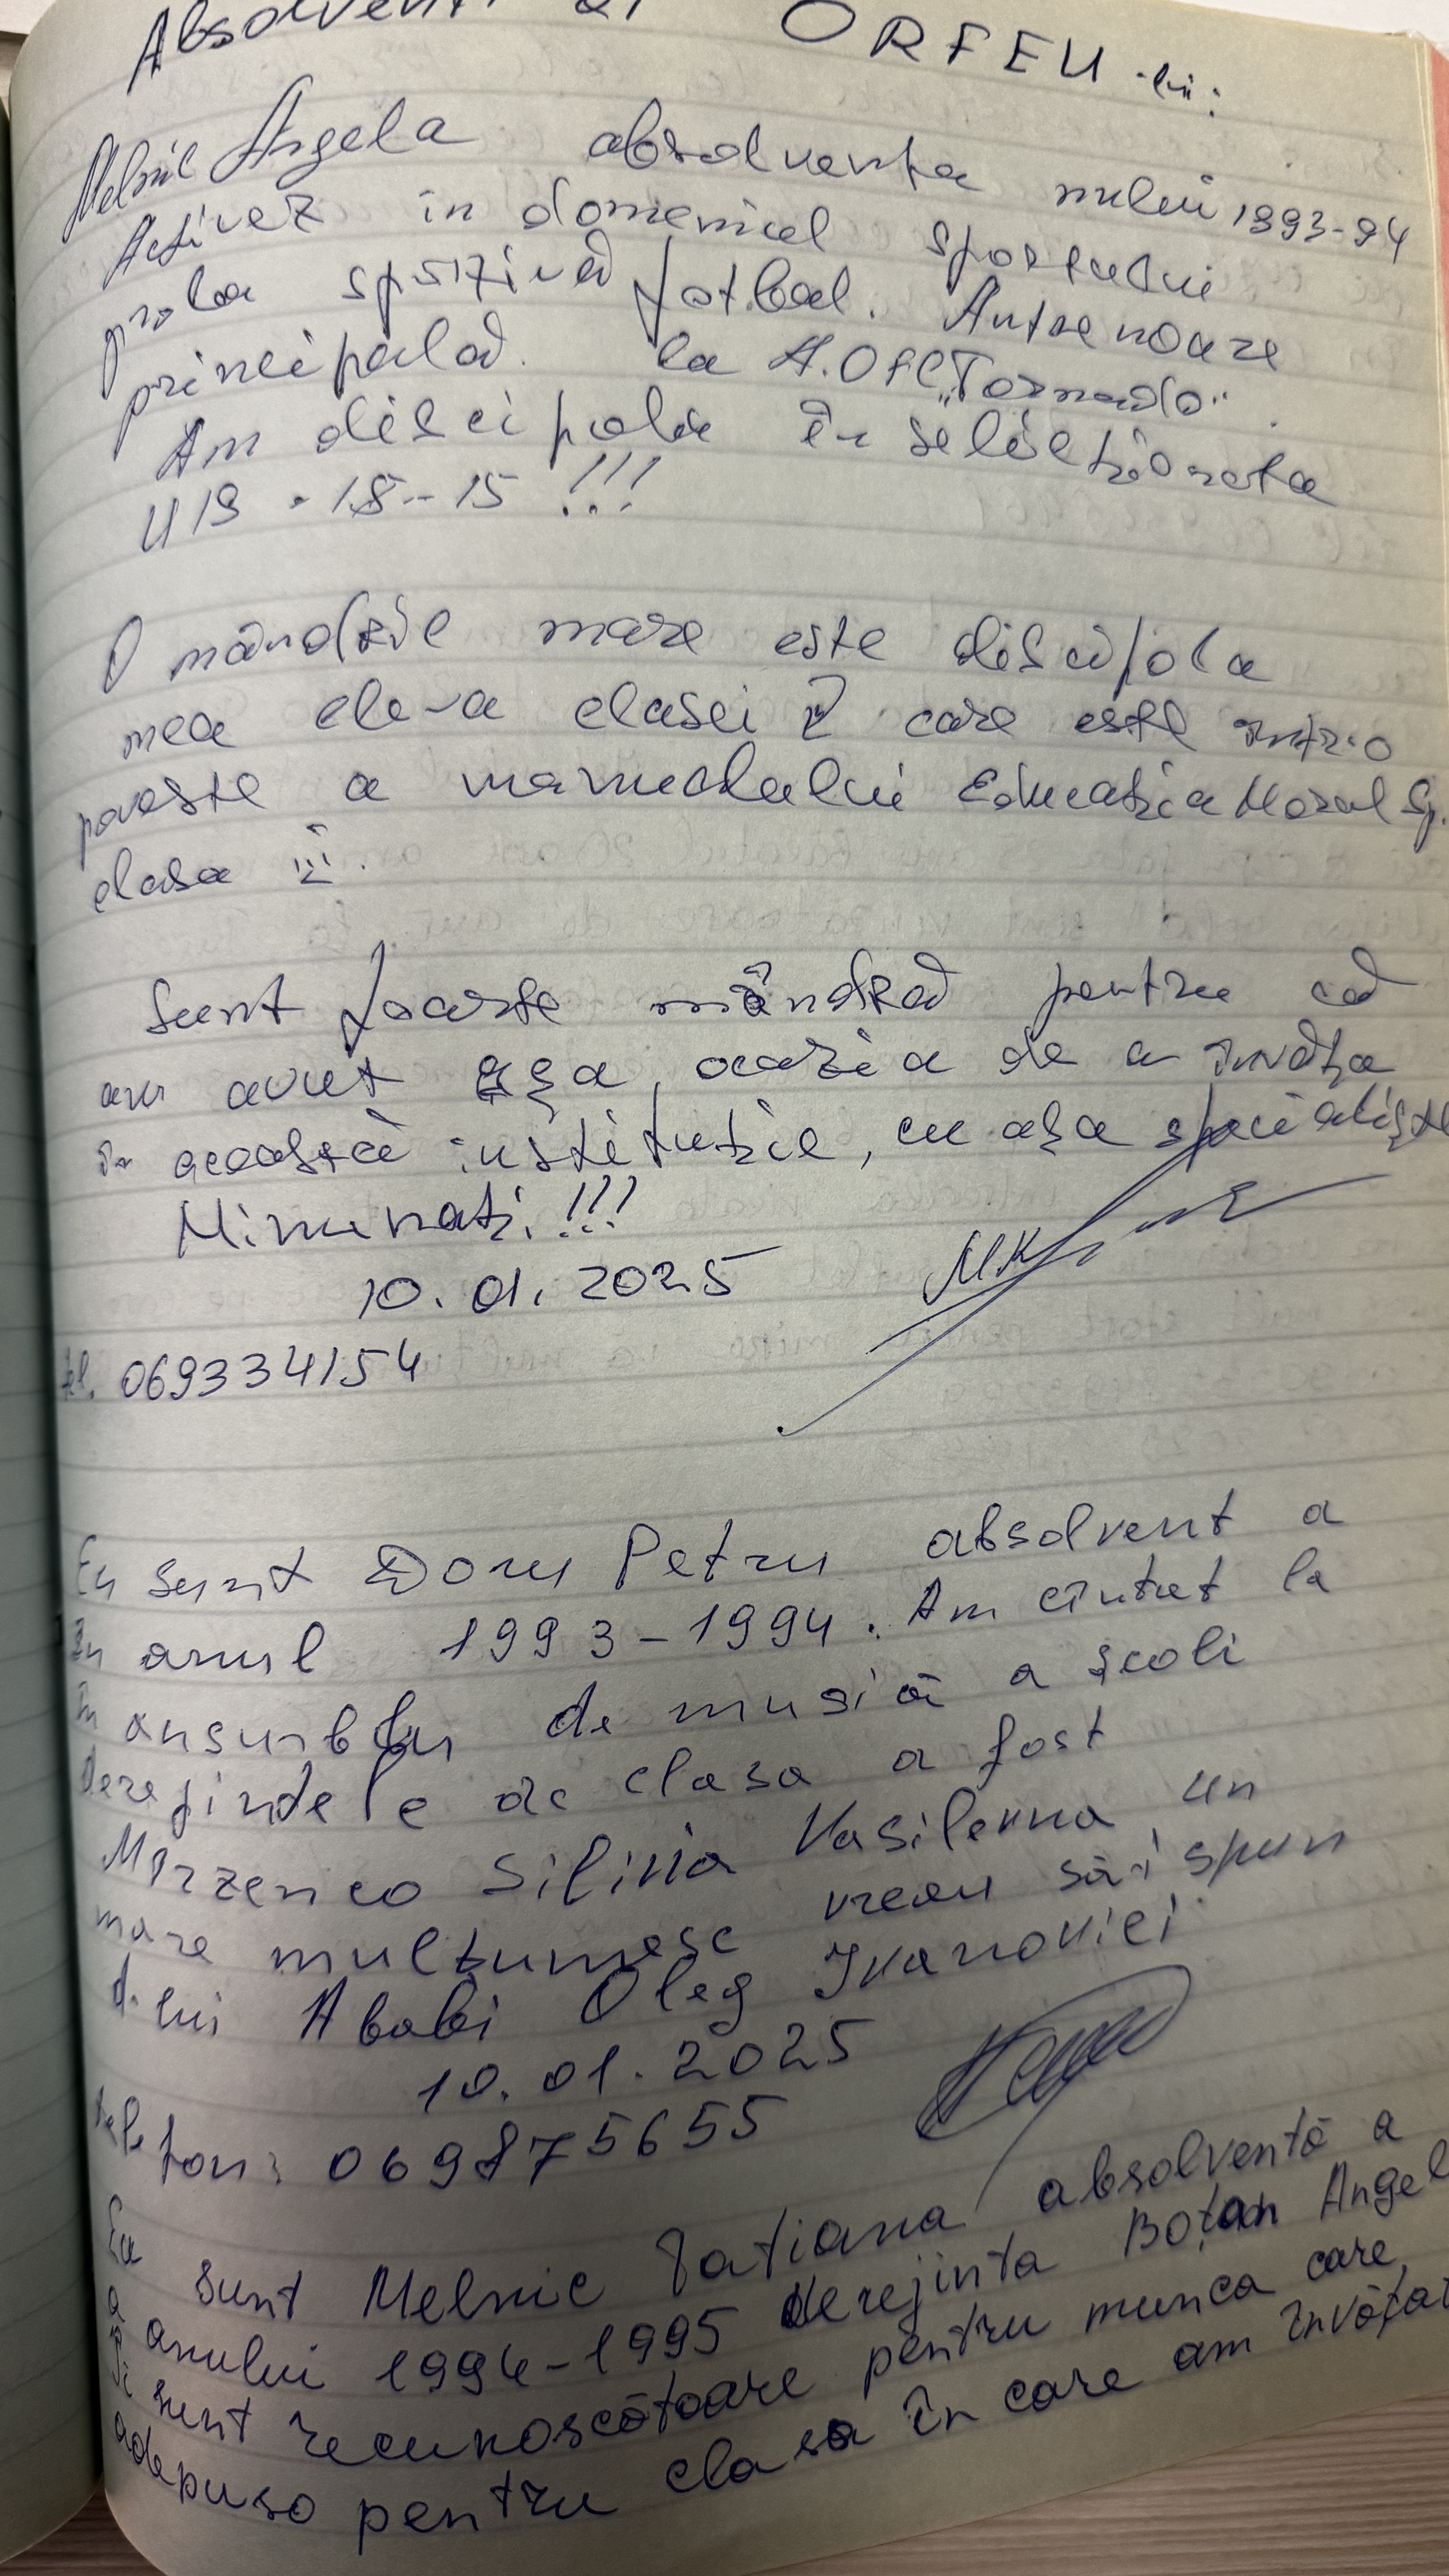 Absolvenți ai ORFEU-lui:
Melnic Angela absolventa anului 1993-94
Activez în domeniul sportului
proba sportivă fotbal. Antrenoare
principală la A.O FC "Tornado".
Am discipole în selecționata
U19 - 18 - 15 !!!
O mândrie mare este discipola
mea ele-va clasei care este într-o
poveste a manualului Educația Moral Sp.
clasa III.
Sunt foarte mândră pentru că
am avut așa, ocazia de a învăța
în această instituție, cu așa specialiște
Minunați!!!
10.01.2025
tel. 069334154
Eu sunt Doru Petru absolvent a
în anul 1993-1994. Am cîntat la
în ansunblu de musică a școli
derejintele de clasa a fost
Mirzenco Silivia Vasilevna, un
mare mulțumesc vreau să-i spun
d-lui Ababi Oleg Ivanovici
10.01.2025
telefon: 069875655
Eu sunt Melnic Tatiana absolventă a
anului 1994-1995 derejinta Boțan Angela
ași sunt recunoscătoare pentru munca care
a depuso pentru clasa în care am învățat